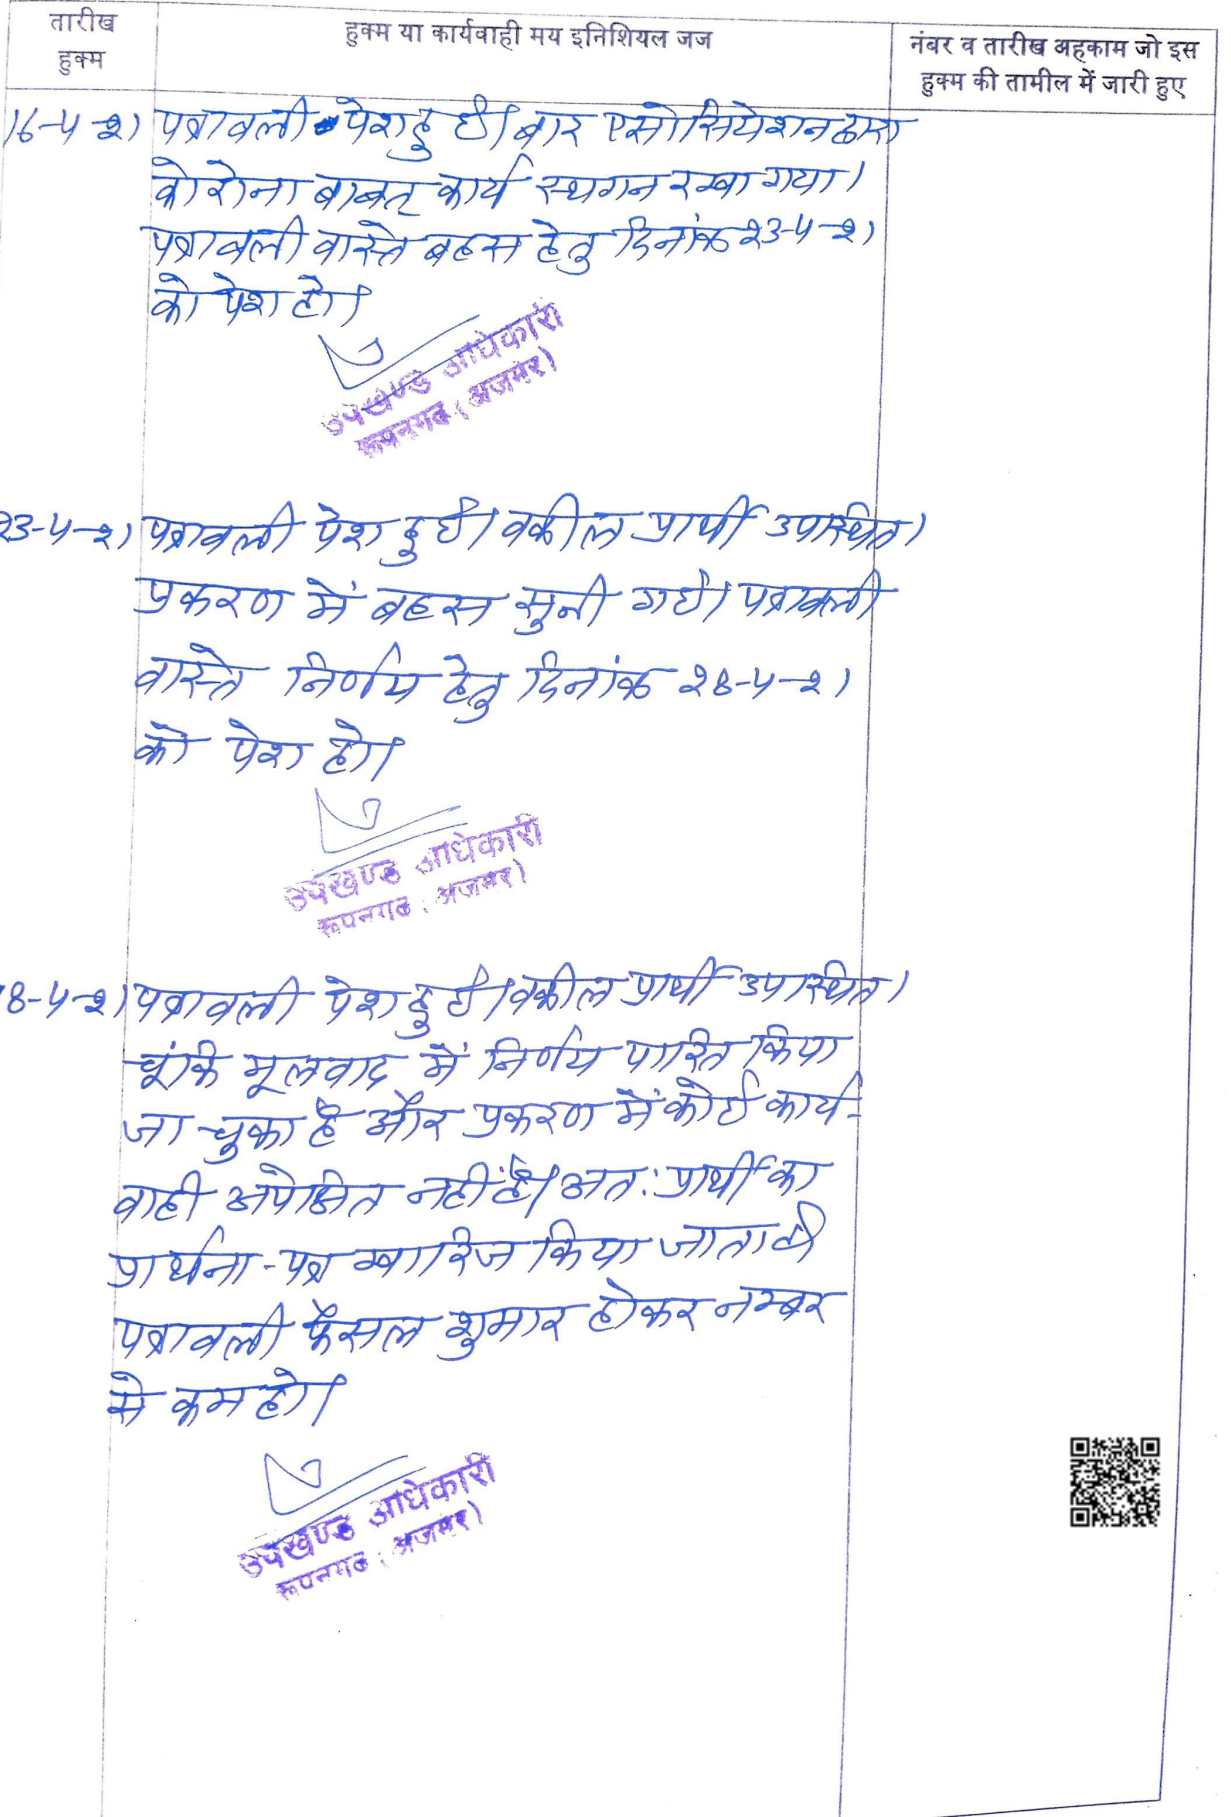 तारीख
हुक्म
हुक्म या कार्यवाही मय इनिशियल जज
नंबर व तारीख अहकाम जो इस
हुक्म की तामील में जारी हुए
16-4-21 पत्रावली पेश हुई। बार एसोसियेशन द्वारा
कोरोना बाबत् कार्य स्थगन रखा गया।
पत्रावली वास्ते बहस हेतु दिनांक 23-4-21
को पेश हो।
उपखण्ड अधिकारी
रूपनगढ़ (अजमेर)
23-4-21 पत्रावली पेश हुई। वकील प्रार्थी उपस्थित।
प्रकरण में बहस सुनी गई। पत्रावली
वास्ते निर्णय हेतु दिनांक 28-4-21
को पेश हो।
उपखण्ड अधिकारी
रूपनगढ़ (अजमेर)
8-4-21 पत्रावली पेश हुई। वकील प्रार्थी उपस्थित।
चूंकि मूलवाद में निर्णय पारित किया
जा चुका है और प्रकरण में कोई कार्य-
वाही अपेक्षित नहीं है। अत: प्रार्थी का
प्रार्थना-पत्र खारिज किया जाता है।
पत्रावली फैसल शुमार होकर नम्बर
से कम हो।
उपखण्ड अधिकारी
रूपनगढ़ (अजमेर)